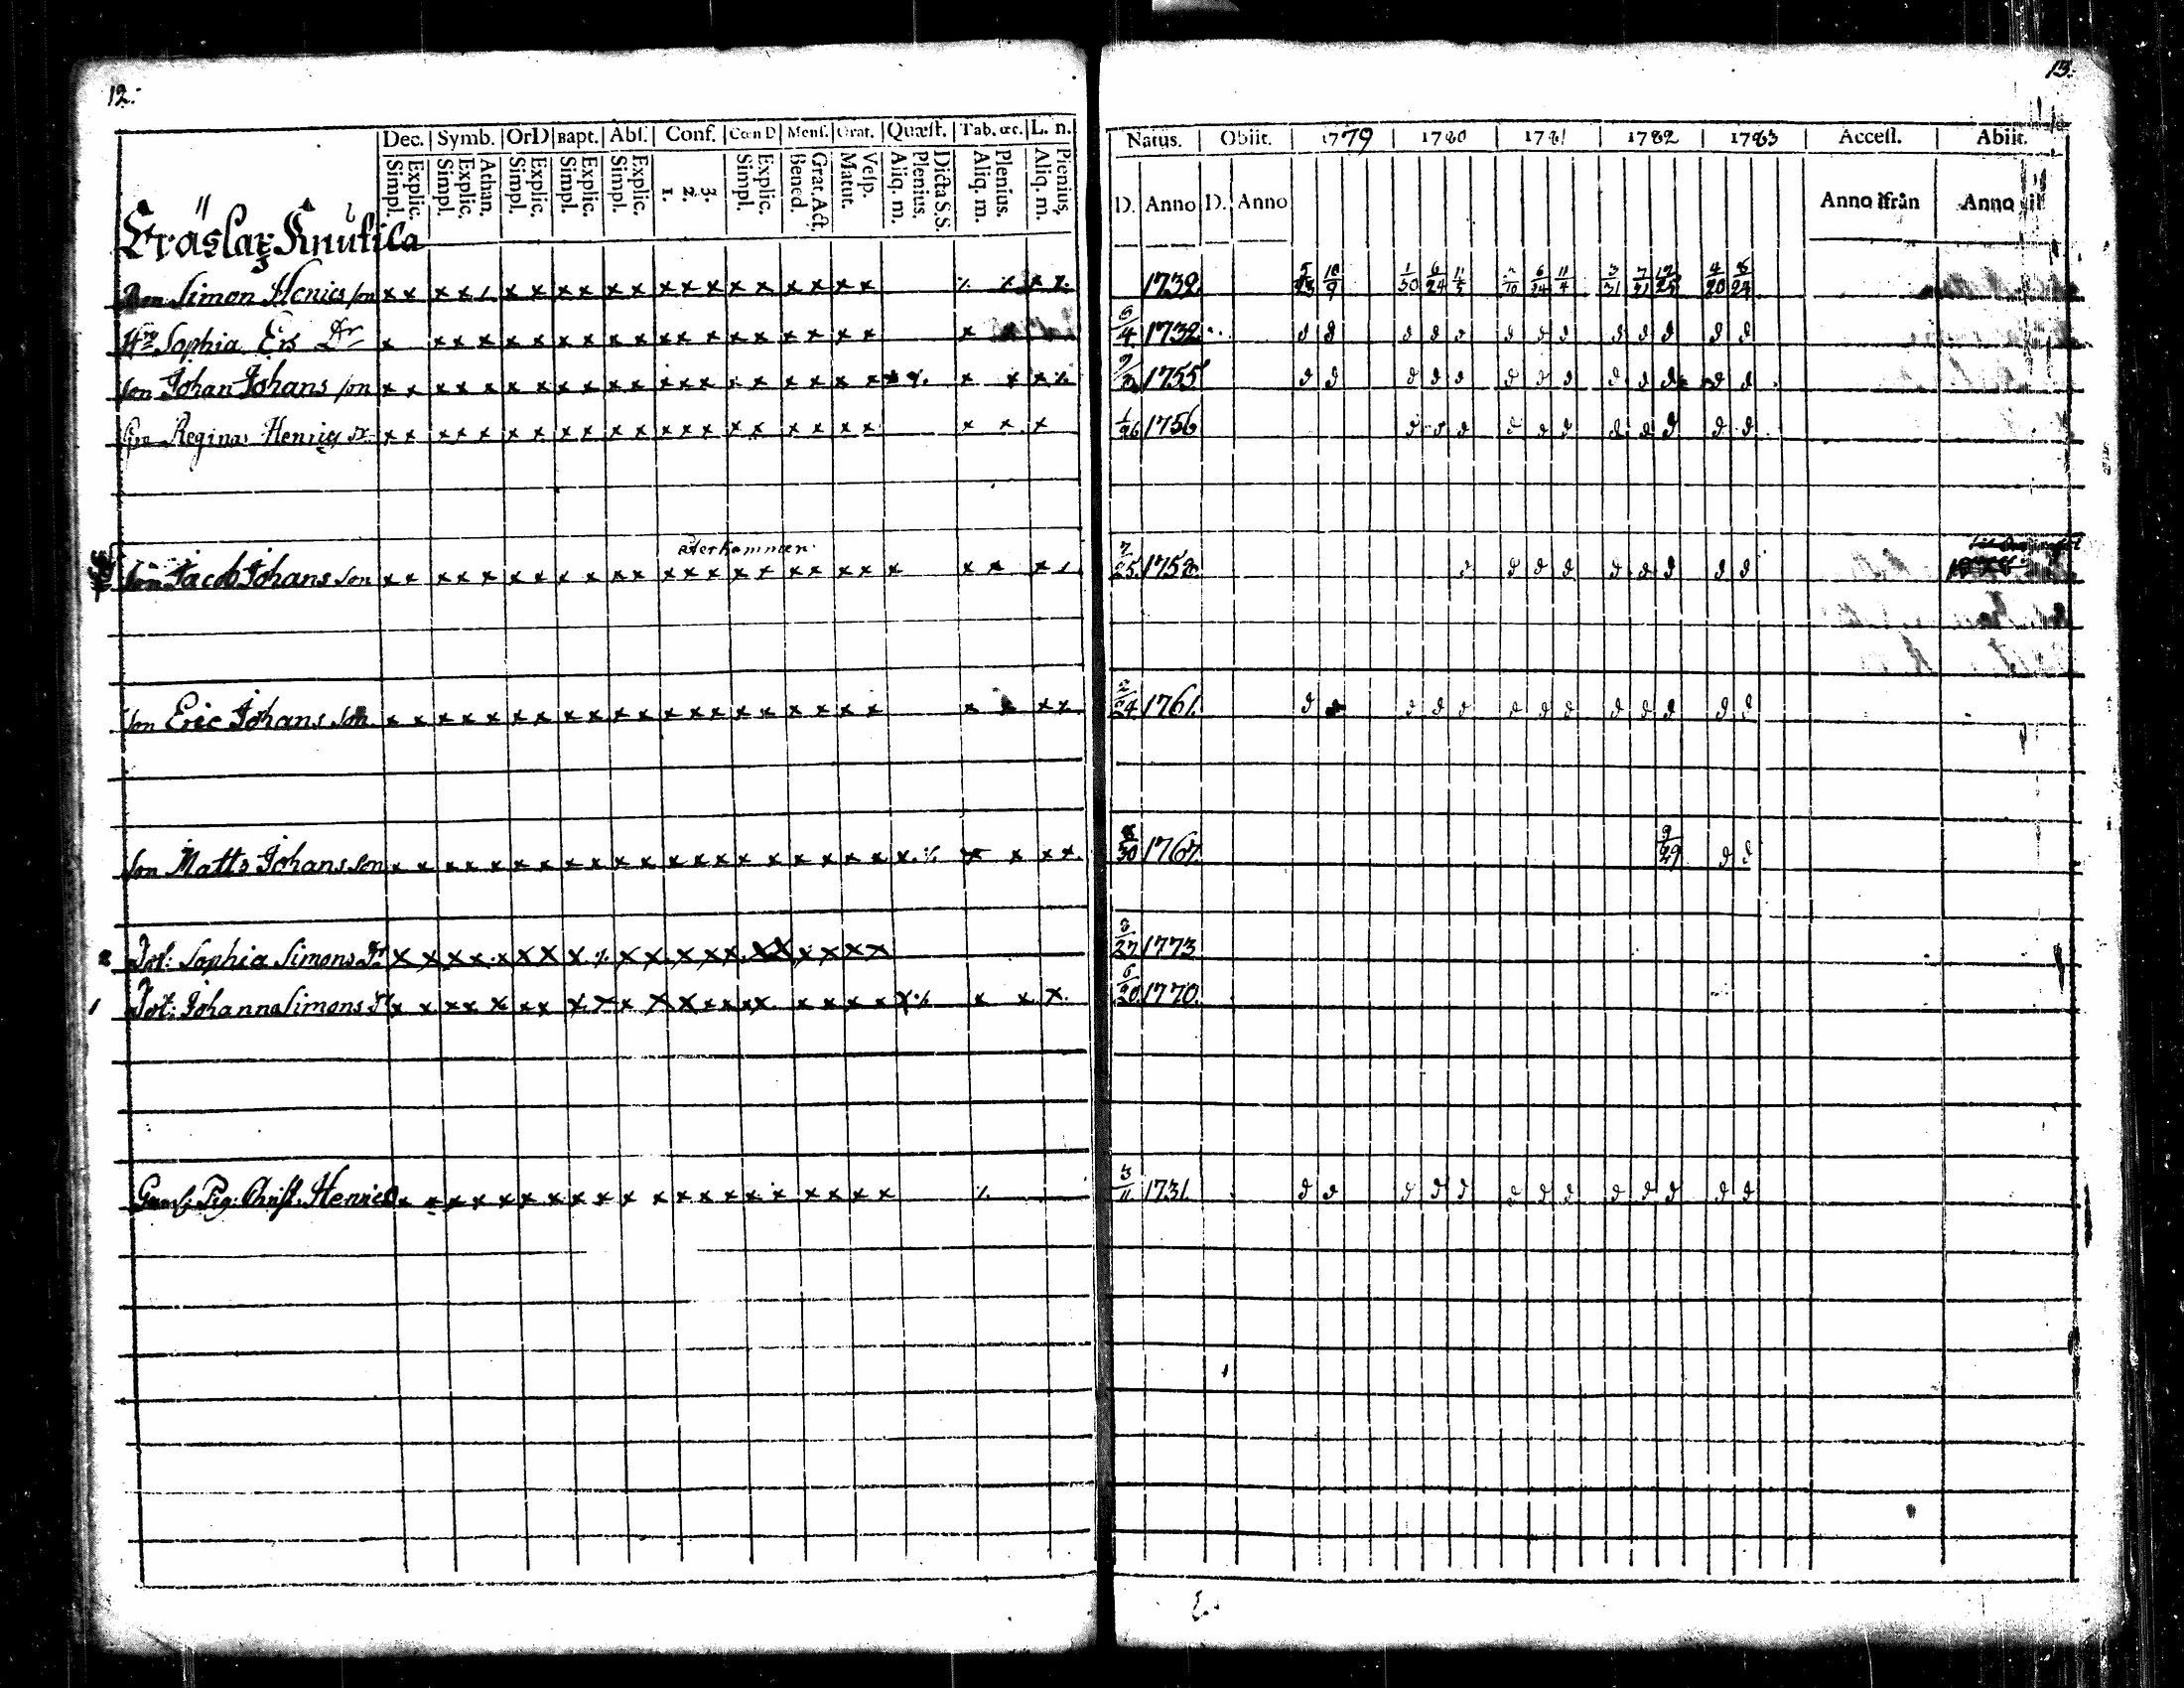 12.
Dec. Symb. OrD Bapt. Abſ. Conf. Cœn D Menſ. Orat. Quæſt. Tab. &c. L. n.
Simpl. Explic. Simpl. Explic. Athan. Simpl. Explic. Simpl. Explic. Simpl. Explic. 1. 2. 3. Simpl. Explic. Bened. Grat. Act. Matut. Veſp. Aliq. m. Plenius. Dicta S.S. Aliq. m. Plenius. Aliq. m. Plenius.
Knutila
Simon Henics son x x x x x x x x x x x x x x x x x x x
Sophia Ers Dr x x x x x x x x x x x x x x x x x x
Son Johan Johans son x x x x x x x x x x x x x x x x x x
Regina Henrics dr x x x x x x x x x x x x x x x x x x
återkommen
Son Jacob Johans son x x x x x x x x x x x x x x x x x x
Son Eric Johans son x x x x x x x x x x x x x x x x x x
Son Matts Johans son x x x x x x x x x x x x x x x x x x
2 Dot: Sophia Simons Dr x x x x x x x x x x x x x x x x
1 Dot: Johanna Simons Dr x x x x x x x x x x x x x x x x
Pig: Chriſt. Henrics x x x x x x x x x x x x x x x x
13.
Natus. Obiit. 1779 1780 1781 1782 1783 Acceſſ. Abiit.
D. Anno D. Anno Anno ifrån Anno
1732 10/9 1/30 6/24 6/24 3/31 7/21 4/20
1732 d d d d d d d d d d d d d
1755 d d d d d d d d d d d d d
1/26 1756 d d d d d d d d d d d
7/25 1758 d d d d d d d d d
2/24 1761 d d d d d d d d d d d d
30 1767 9/29 d d
27 1773
20 1770
3/11 1731 d d d d d d d d d d d d d